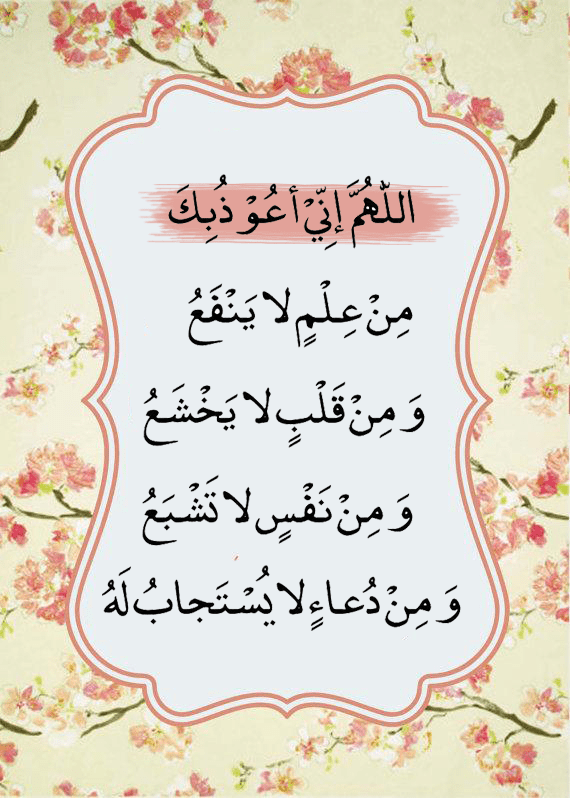 اللّٰهُمَّ إنِّيْ أعُوْ ذُبِكَ
مِنْ عِلْمٍ لا يَنْفَعُ
وَ مِنْ قَلْبٍ لا يَخْشَعُ
وَ مِنْ نَفْسٍ لا تَشْبَعُ
وَ مِنْ دُعاءٍ لا يُسْتَجابُ لَهُ